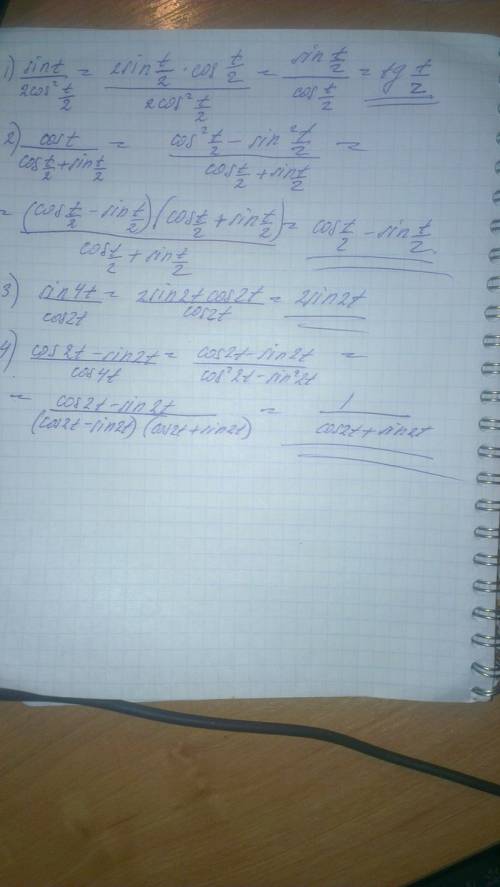 1) sin t / 2cos² t/2 = 2sin t/2 · cos t/2 / 2cos² t/2 = sin t/2 / cos t/2 = tg t/2
2) cos t / cos t/2 + sin t/2 = cos² t/2 − sin² t/2 / cos t/2 + sin t/2 =
= (cos t/2 − sin t/2)(cos t/2 + sin t/2) / cos t/2 + sin t/2 = cos t/2 − sin t/2
3) sin4t / cos2t = 2sin2t cos2t / cos2t = 2sin2t
4) cos2t − sin2t / cos4t = cos2t − sin2t / cos²2t − sin²2t =
= cos2t − sin2t / (cos2t − sin2t)(cos2t + sin2t) = 1 / cos2t + sin2t